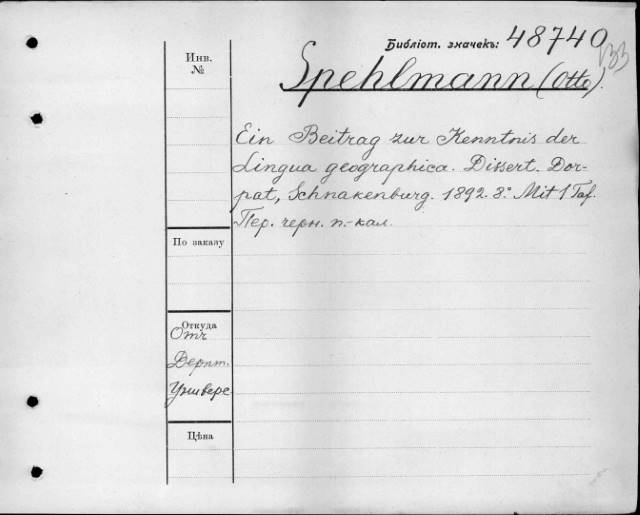 Библіот. значекъ: 48740
133
Инв.
№
Spehlmann (Otto).
Ein Beitrag zur Kenntnis der
Lingua geographica. Dissert. Dor-
pat, Schnakenburg. 1892. 8.° Mit 1 Taf.
Пер. черн. п.-кал.
По заказу
Откуда
Отъ
Дерпт.
Универс
Цѣна